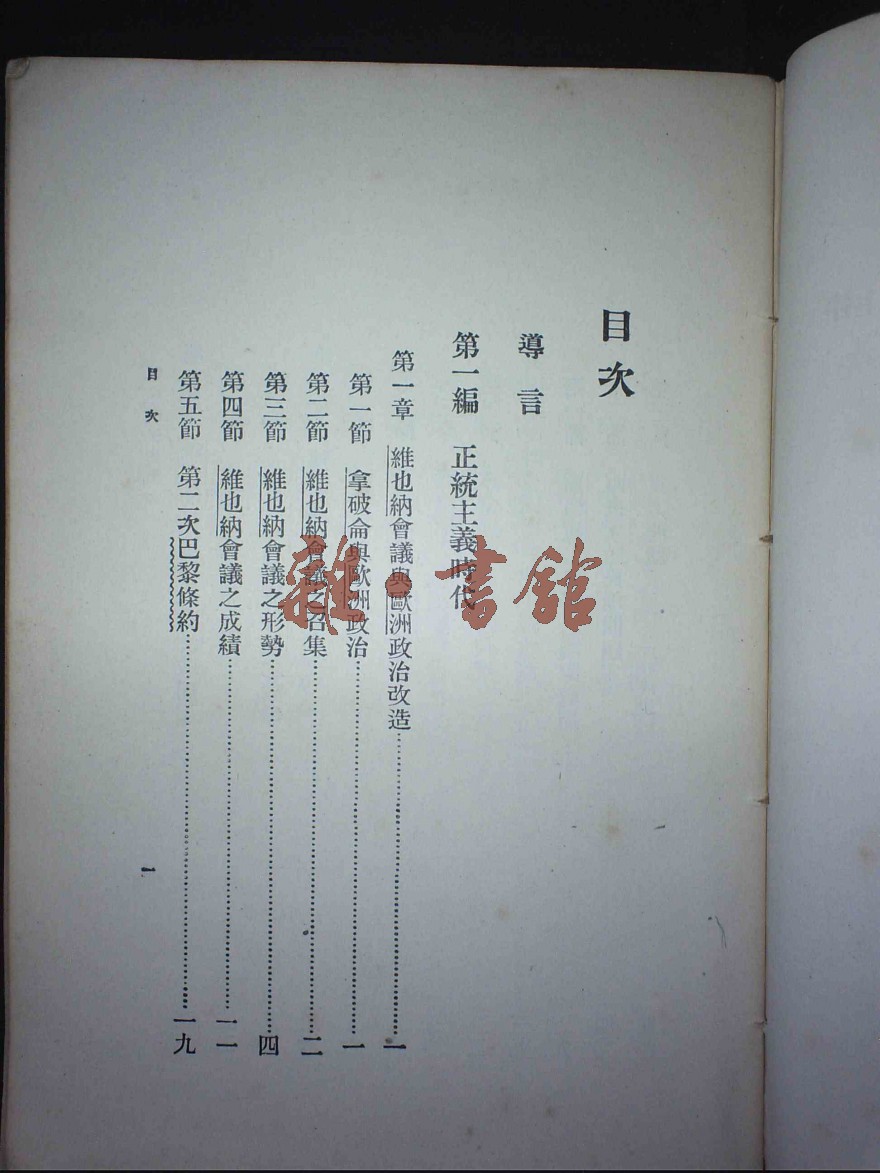 目次
導言
第一編　正統主義時代
第一章　維也納會議與歐洲政治改造…………一
第一節　拿破侖與歐洲政治…………一
第二節　維也納會議之召集…………二
第三節　維也納會議之形勢…………四
第四節　維也納會議之成績…………一一
第五節　第二次巴黎條約…………一九
目次
一
雜·書館